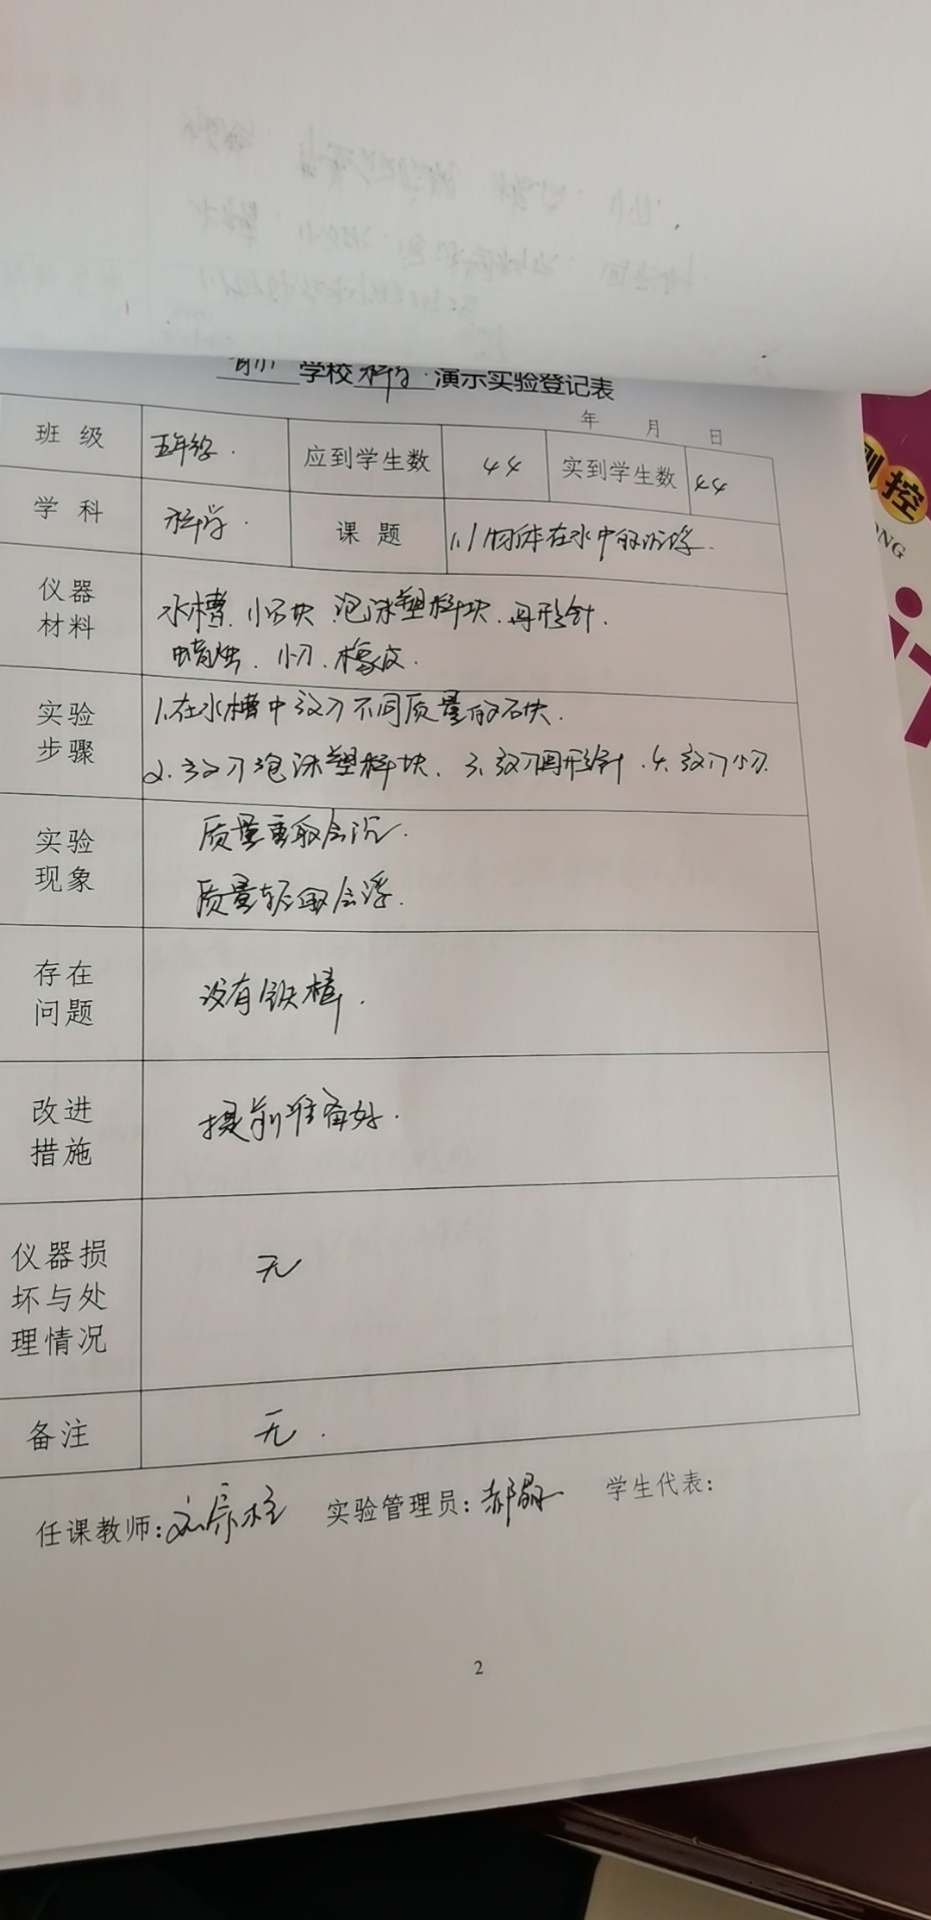 学校科学演示实验登记表
年 月 日
班级 五年级. 应到学生数 44 实到学生数 44
学科 科学. 课题 1.1物体在水中的沉浮.
仪器材料 水槽、小石块、泡沫塑料块、回形针、
蜡烛、小刀、橡皮.
实验步骤 1.在水槽中放入不同质量的石块.
2.放入泡沫塑料块. 3.放入回形针. 4.放入小刀.
实验现象 质量重取会沉.
质量轻取会浮.
存在问题 没有铁棒.
改进措施 提前准备好.
仪器损坏与处理情况 无
备注 无.
任课教师: 实验管理员: 郝 学生代表:
2
控
ONG